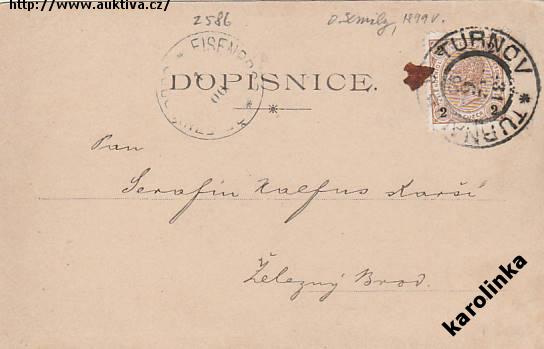 http://www.auktiva.cz/
2586
o. Semily, 1899 v.
TURNOV * TURNAU
EISENBROD
DOPISNICE.
2 2
Pan
Serafin Halfus starší
Železný Brod.
karolinka